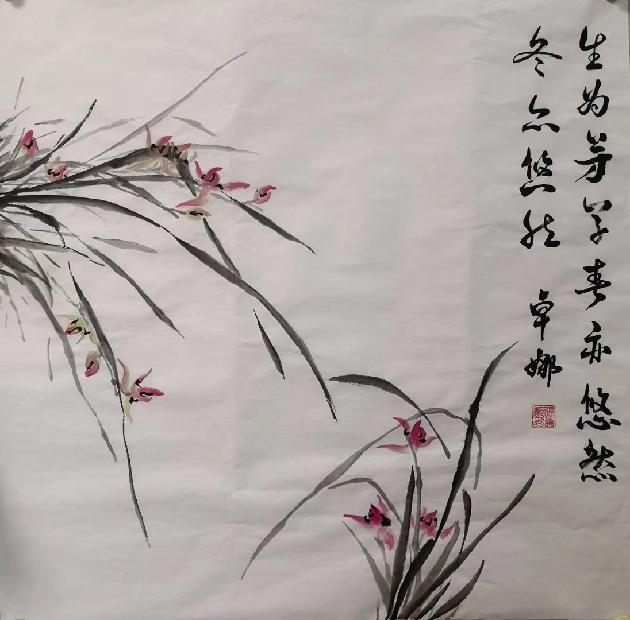 生为芳草春亦悠然
冬亦悠然
卓娜